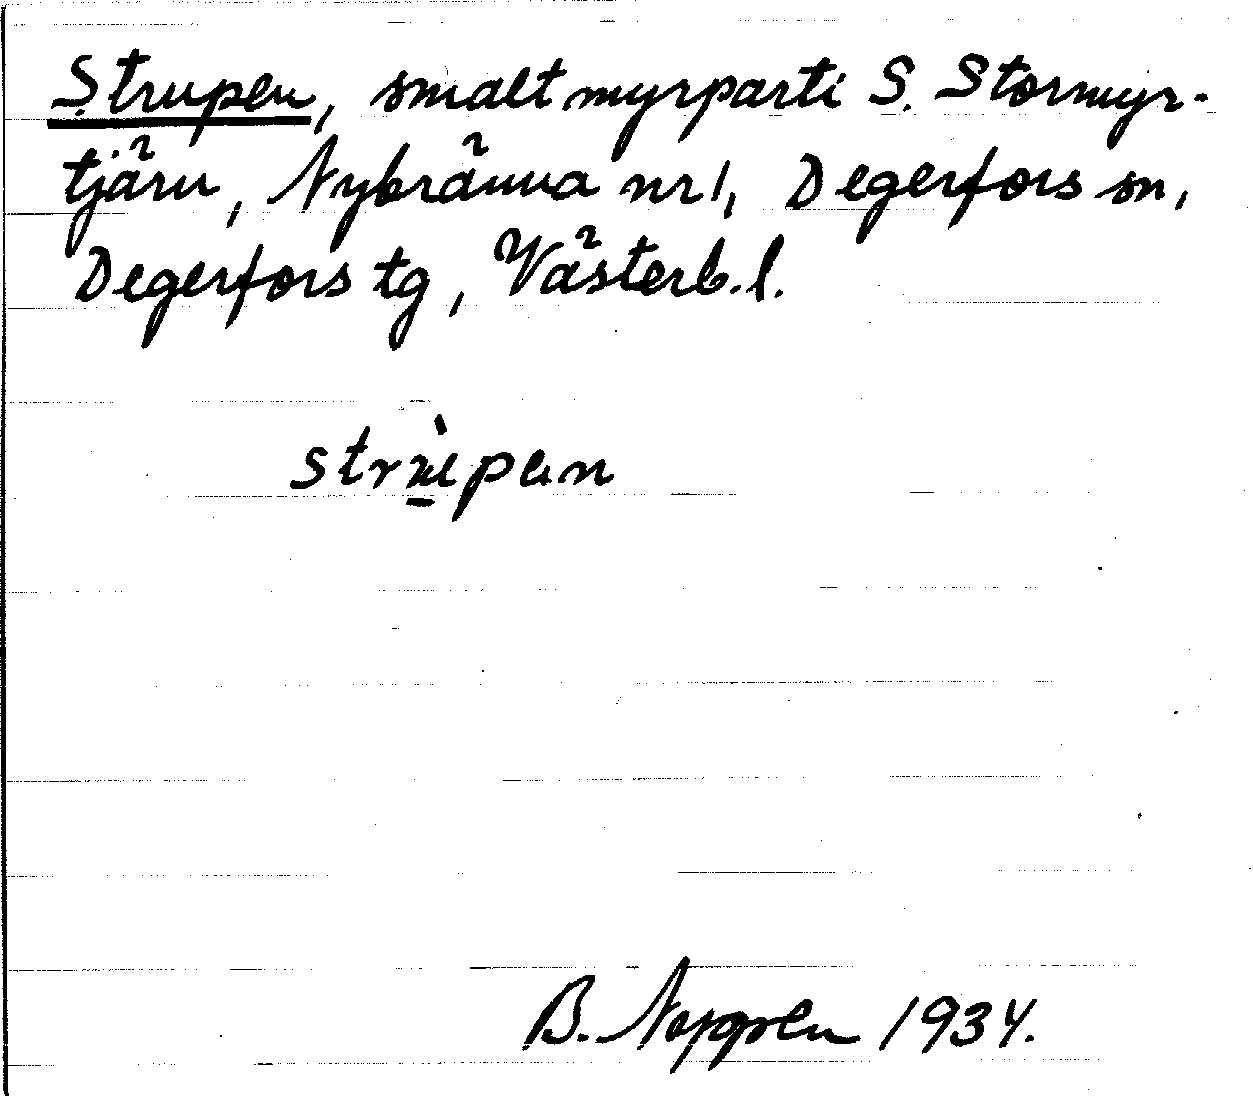 Strupen, smalt myrparti S. Stormyr-
tjärn, Nybränna nr 1, Degerfors sn,
Degerfors tg, Västerb. l.
strùpen
B. 1934.